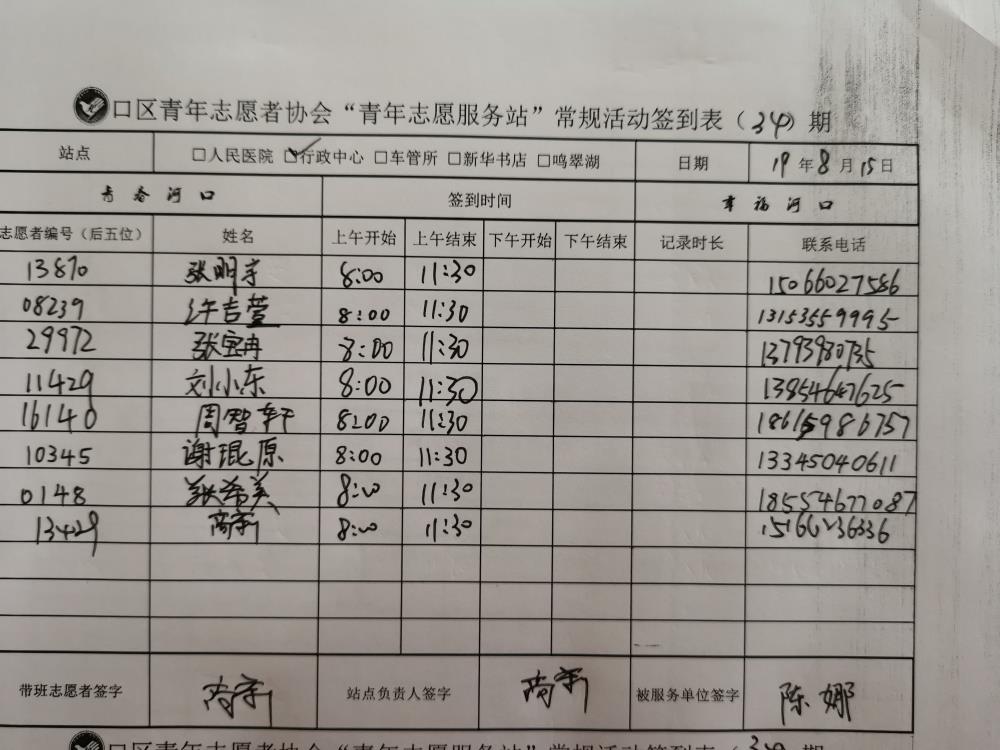 口区青年志愿者协会“青年志愿服务站”常规活动签到表（34）期
站点 □人民医院 ☑行政中心 □车管所 □新华书店 □鸣翠湖 日期 19年8月15日
青春河口 签到时间 幸福河口
志愿者编号（后五位） 姓名 上午开始 上午结束 下午开始 下午结束 记录时长 联系电话
13870 张明宇 8:00 11:30 15066027586
08239 许吉萱 8:00 11:30 13153559995
29972 张宝冉 8:00 11:30 13793980735
11429 刘小东 8:00 11:30 13854647625
16140 周智轩 8:00 11:30 18615986757
10345 谢琨原 8:00 11:30 13345040611
0148 希美 8:00 11:30 18554677087
13429 商宇 8:00 11:30
带班志愿者签字 商宇 站点负责人签字 商宇 被服务单位签字 陈娜
口区青年志愿者协会“青年志愿服务站”常规活动签到表（34）期